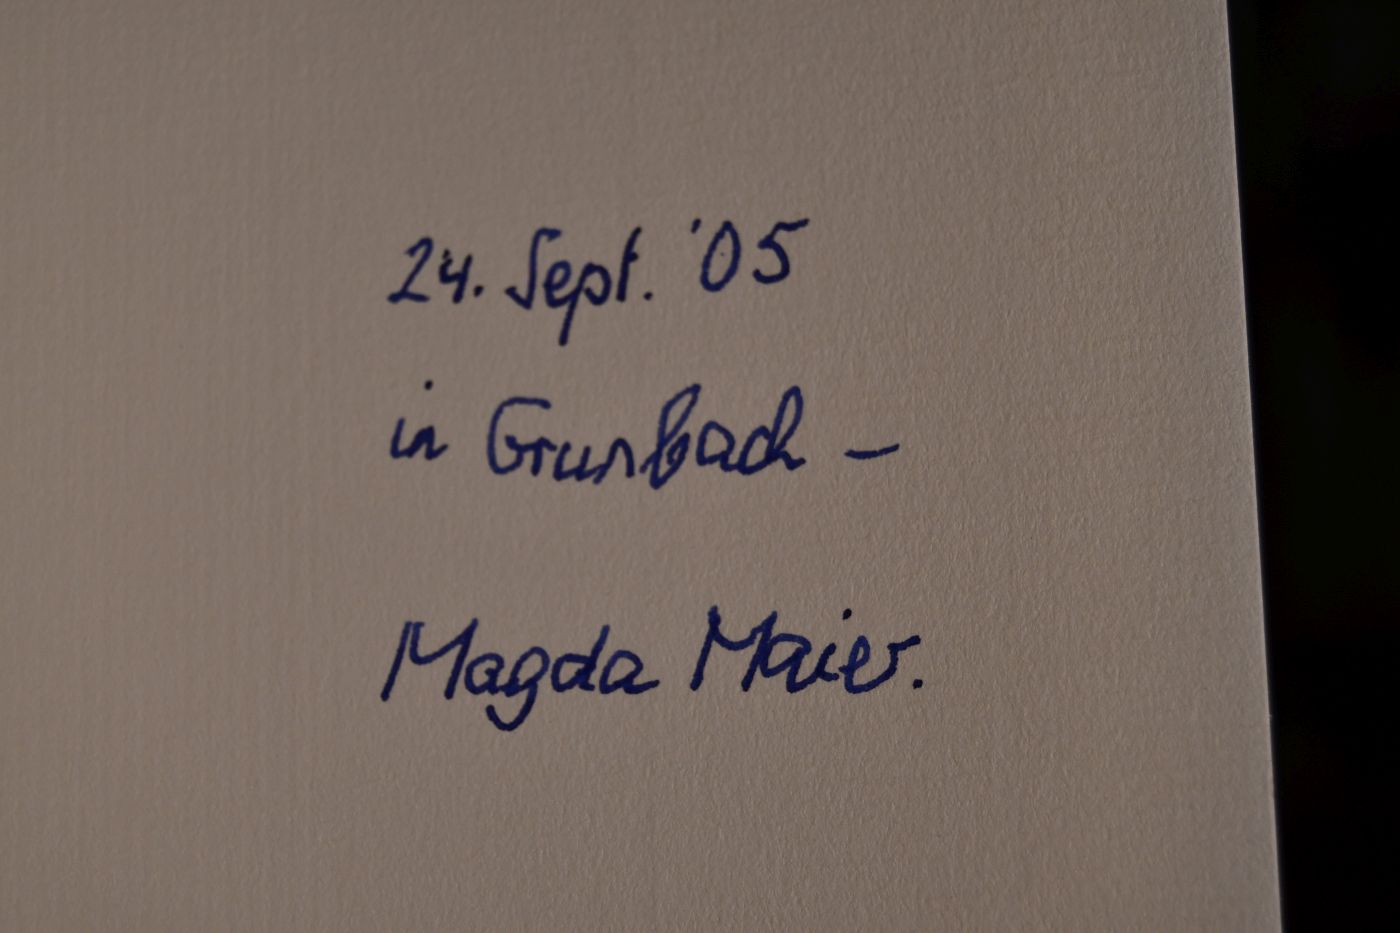 24. Sept. '05
in Grunbach –
Magda Maier.